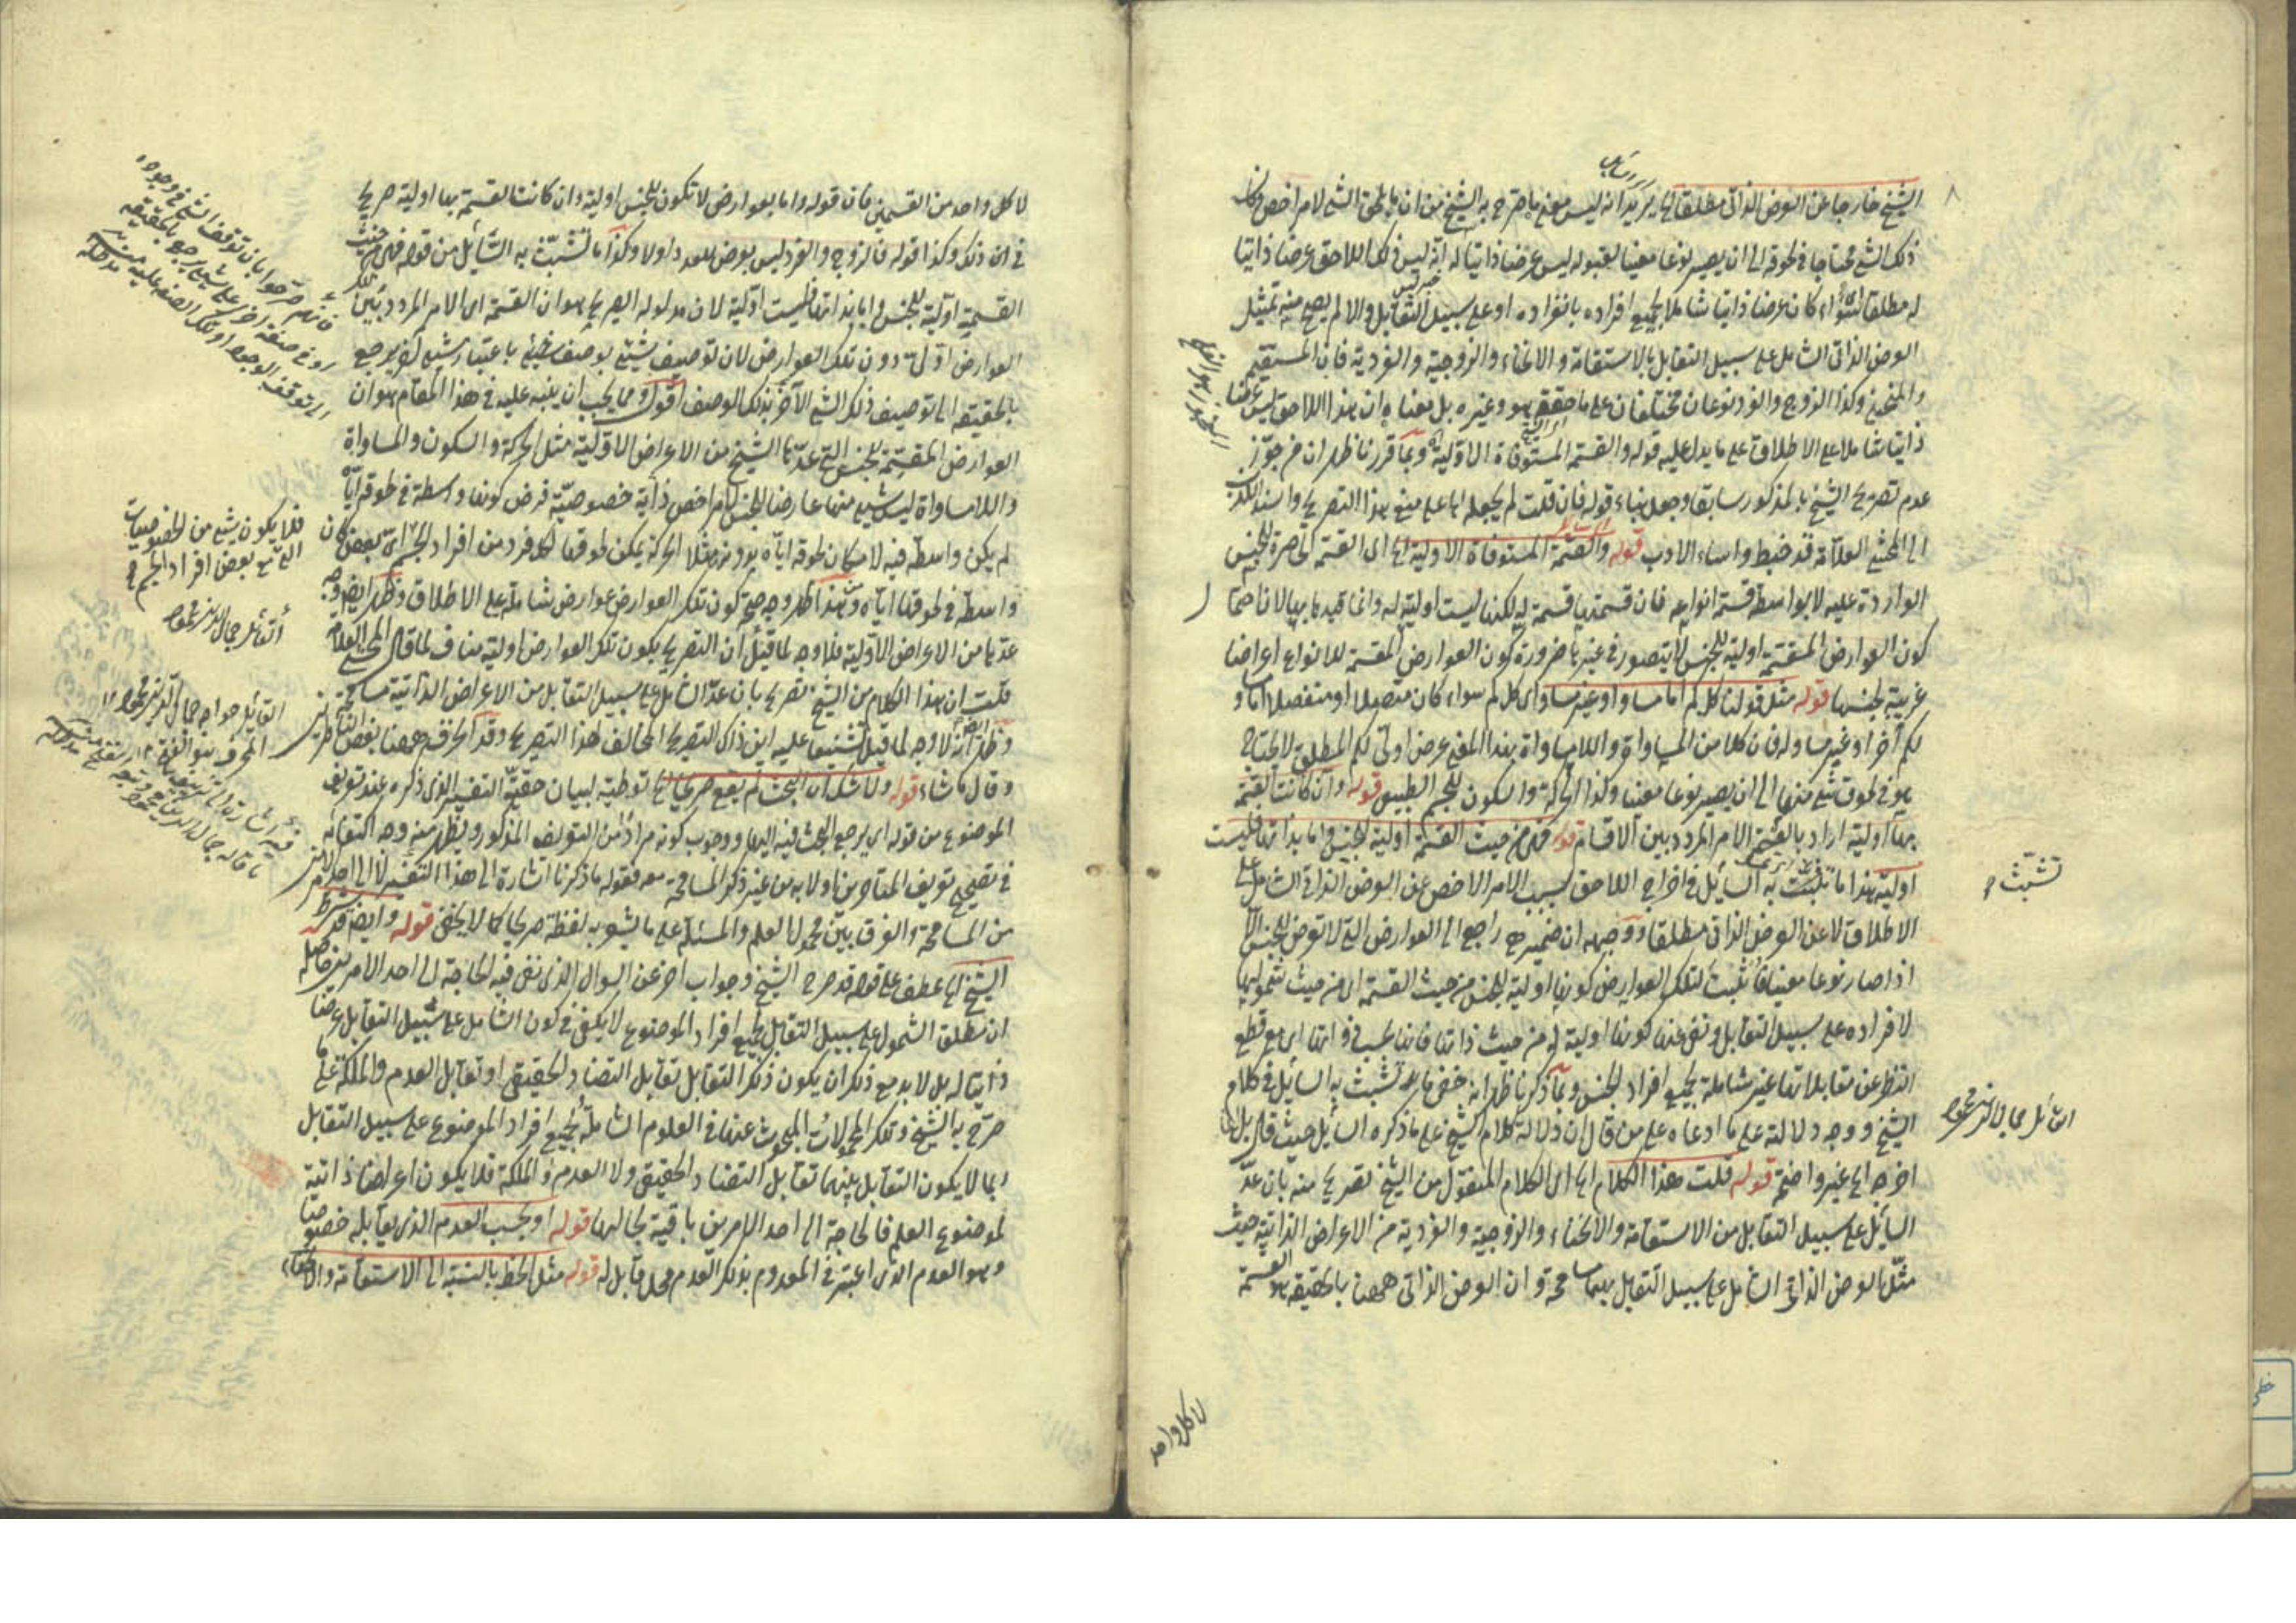 الشيخ خارجا عن العرض الذاتي مطلقا الخ يريد انه ليس معنى ما صرح به الشيخ من ان ما يلحق الشئ لامر اخص وكان
ذلك الشئ محتاجا في لحوقه الى ان يصير نوعا معينا لقبوله ليس عرضا ذاتيا له انه ليس ذلك اللاحق عرضا ذاتيا
له مطلقا سواء كان عرضا ذاتيا شاملا لجميع افراده بانفراده او على سبيل التقابل والا لم يصح منه تمثيل
العرض الذاتي الشامل على سبيل التقابل بالاستقامة والانحناء والزوجية والفردية فان المستقيم
والمنحني وكذا الزوج والفرد نوعان مختلفان على ما حققه هو وغيره بل معناه ان هذا اللاحق ليس عرضا
ذاتيا شاملا على الاطلاق على ما يدل عليه قوله والقسمة المستوفاة الاولية وبما قررنا ظهر ان من جوز
عدم تصريح الشيخ بالمذكور سابقا وجعل بناء قوله فان قلت لم يجعله اما على منع هذا التصريح واسند
الى المحشي العلامة قد خبط واساء الادب قوله والقسمة المستوفاة الاولية الخ اي القسمة الحاصرة للجنس
الواردة عليه لا بواسطة قسمة انواعه فان قسمتها قسمة له لكنها ليست اولية له وانما قيد بها
كون العوارض المقسمة اولية للجنس لا يتصور في غيرها ضرورة كون العوارض المقسمة للانواع اعراضا
غريبة لجنسها قوله مثل قولنا كل كم اما مساو او غير مساو اي كل كم سواء كان متصلا او منفصلا اما مساو
لكم آخر او غير مساو له فان كلا من المساواة واللامساواة بهذا المعنى عرض اولى لكم المطلق لا يحتاج
هو في لحوق شئ منهما الى ان يصير نوعا معينا وكذا الحركة والسكون للجسم الطبيعي قوله وان كانت القسمة
بها اولية اراد بالقسمة الامر المردد بين الاقسام قوله فهي من حيث القسمة اولية للجنس واما بذاتها فليست
اولية هذا ما تشبث به السائل في اخراج اللاحق بسبب الامر الاخص عن العرض الذاتي الشامل على
الاطلاق لا عن العرض الذاتي مطلقا ووجهه ان ضمير هي راجع الى العوارض التي لا تعرض للجنس الا
اذا صار نوعا معينا فاثبت لتلك العوارض كونها اولية للجنس من حيث القسمة اي من حيث شمولها
لافراده على سبيل التقابل ونفى عنها كونها اولية له من حيث ذاتها فانها بحسب ذواتها اي مع قطع
النظر عن مقابلاتها غير شاملة لجميع افراد الجنس وبما ذكرنا ظهر انه خفي ما تشبث به السائل في كلام
الشيخ ووجه دلالته على ما ادعاه على من قال ان دلالة كلام الشيخ على ما ذكره السائل حيث قال بل
اخره الخ غير واضحة قوله قلت هذا الكلام الخ اي الكلام المنقول من الشيخ تصريح منه بان عد
السائل على سبيل التقابل من الاستقامة والانحناء والزوجية والفردية من الاعراض الذاتية حيث
مثل العرض الذاتي الشامل على سبيل التقابل بهما مسامحة وان العرض الذاتي ههنا بالحقيقة هو القسمة
تشبث
القائل جمال الدين محمود
لا كل واحد
لا كل واحد من القسمين فان قوله واما بعوارض لا تكون للجنس اولية وان كانت القسمة بها اولية صريح
في ان ذلك وكذا قوله فالزوج والفرد ليس بعرض للعدد اولا وكذا ما تشبث به السائل من قوله فهي من حيث
القسمة اولية للجنس واما بذاتها فليست اولية لان مدلوله الصريح هو ان القسمة اي الامر المردد بين تلك
العوارض اولى دون تلك العوارض لان توصيف شئ بوصف شئ باعتبار شئ آخر يرجع
بالحقيقة الى توصيف ذلك الشئ الآخر بذلك الوصف اقول ومما يجب ان ينبه عليه في هذا المقام هو ان
العوارض المقسمة للجنس التي عدها الشيخ من الاعراض الاولية مثل الحركة والسكون والمساواة
واللامساواة ليس شئ منها عارضا للجنس لامر اخص ذاية خصوصية فرض كونها واسطة في لحوقه اياه
لم يكن واسطة فيه لامكان لحوقه اياه بدونه مثلا الحركة يمكن لحوقها لكل فرد من افراد الجسم اي بعض كان
واسطة في لحوقها اياه وبهذا ظهر وجه صحة كون تلك العوارض عوارض شاملة على الاطلاق وظهر ايضا وجه
عدها من الاعراض الاولية فلا وجه لما قيل ان التصريح بكون تلك العوارض اولية مناف لما قال المحشي العلامة
قلت ان هذا الكلام من الشيخ تصريح بان عد الشامل على سبيل التقابل من الاعراض الذاتية مسامحة
وظهر ايضا انه لا وجه لما قيل تشنيعا عليه اين ذاك التصريح المخالف لهذا التصريح وقد انحرف ههنا بعض الناظرين
وقال ما شاء قوله ولا شك ان البحث لم يقع صريحا الخ توطية لبيان حقية التفسير الذي ذكره عند تعريف
الموضوع من قوله اي يرجع البحث فيه اليها ووجوب كونه مرادا من التعريف المذكور ويظهر منه وجه اكتفائه
في تصحيح تعريف المتاخرين اولا به من غير ذكر المسامحة معه فقوله ما ذكرنا اشارة الى هذا التفسير لا الى احد الامرين
من المسامحة والفرق بين محمول العلم والمسئلة على ما يشعر به لفظة صريحا كما لا يخفى قوله وايضا قد شرط
الشيخ الخ عطف على قوله قد صرح الشيخ وجواب آخر عن السؤال الذي نفى فيه الحاجة الى احد الامرين حاصله
ان مطلق الشمول على سبيل التقابل لجميع افراد الموضوع لا يكفي في كون الشامل على سبيل التقابل عرضا
ذاتيا له بل لا بد مع ذلك ان يكون ذلك التقابل تقابل التضاد الحقيقي او تقابل العدم والملكة على ما
صرح به الشيخ وتلك المحمولات المبحوث عنها في العلوم الشاملة لجميع افراد الموضوع على سبيل التقابل
ربما لا يكون التقابل بينهما تقابل التضاد الحقيقي ولا العدم والملكة فلا يكون اعراضا ذاتية
لموضوع العلم فالحاجة الى احد الامرين باقية بحالها قوله او بحسب العدم الذي يقابله خصوصا
وهو العدم الذي اعتبر في المعدوم بذلك العدم محل قابل له قوله مثل الخط بالنسبة الى الاستقامة والانحناء
فانهم صرحوا بان توقف الشئ في وجوده
او في صفة اخرى على شئ يرجع بالحقيقة
الى توقف الوجود او تلك الصفة عليه
فلا يكون شئ من الخصوصيات
القائل جمال الدين محمود
القائل خواجه جمال الدين محمود